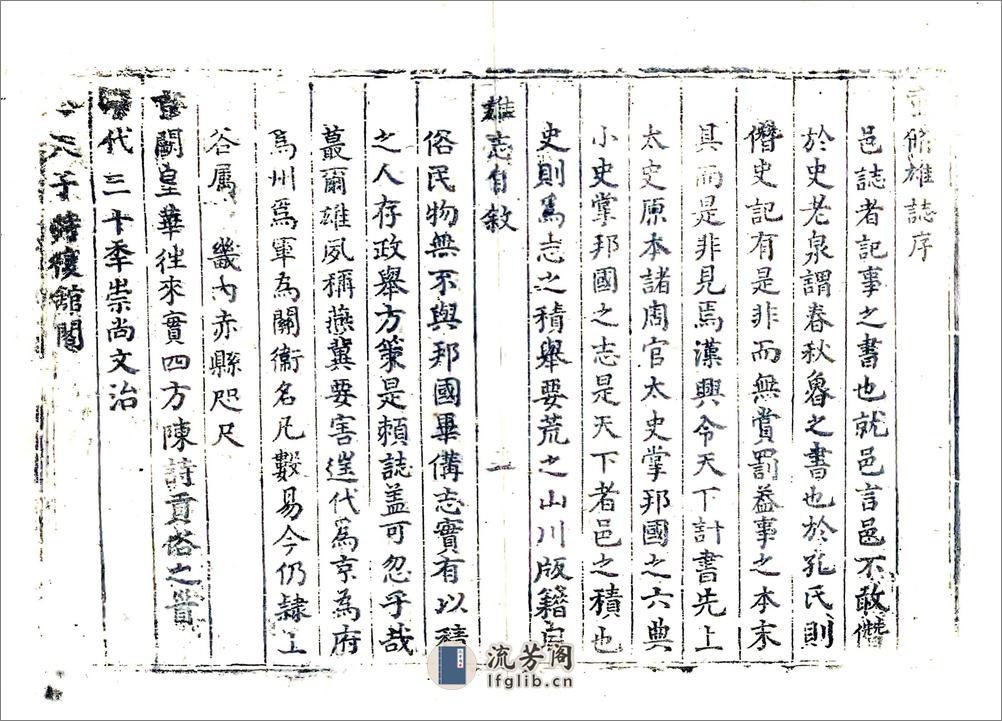 修雄誌序
邑誌者記事之書也就邑言邑不敢僭
於史老泉謂春秋魯之書也於孔氏則
僭史記有是非而無賞罰葢事之本末
具而是非見焉漢興令天下計書先上
太史原本諸周官太史掌邦國之六典
小史掌邦國之志是天下者邑之積也
史則爲志之積舉要荒之山川版籍自
雄志自敘 一
俗民物無不與邦國畢備志實有以積
之人存政舉方策是賴誌盖可忽乎哉
蕞爾雄夙稱燕冀要害遥代爲京為府
爲州爲軍為關衞名凡數易今仍隷上
谷属 畿內赤縣咫尺
闕皇華徃來實四方陳詩貢俗之
代三十季崇尚文治
天子 館閣
流芳阁
lfglib.cn